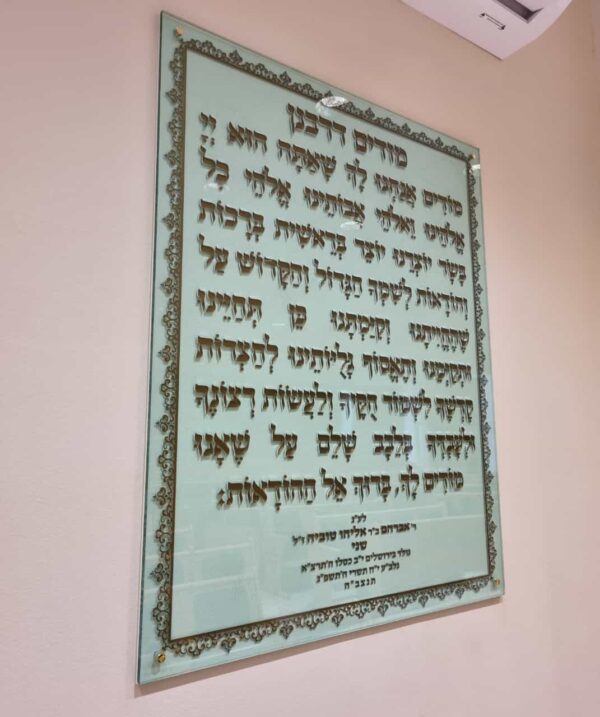 מודים דרבנן
מוֹדִים אֲנַחְנוּ לָךְ שָׁאַתָּה הוּא יְיָ
אֱלֹהֵינוּ וֵאלֹהֵי אֲבוֹתֵינוּ אֱלֹהֵי כָל
בָּשָׂר יוֹצְרֵנוּ יוֹצֵר בְּרֵאשִׁית בְּרָכוֹת
וְהוֹדָאוֹת לְשִׁמְךָ הַגָּדוֹל וְהַקָּדוֹשׁ עַל
שֶׁהֶחֱיִיתָנוּ וְקִיַּמְתָּנוּ כֵּן תְּחַיֵּינוּ
וּתְקַיְּמֵנוּ וְתֶאֱסוֹף גָּלֻיּוֹתֵינוּ לְחַצְרוֹת
קָדְשֶׁךָ לִשְׁמוֹר חֻקֶּיךָ וְלַעֲשׂוֹת רְצוֹנֶךָ
וּלְעָבְדְּךָ בְּלֵבָב שָׁלֵם עַל שֶׁאָנוּ
מוֹדִים לָךְ, בָּרוּךְ אֵל הַהוֹדָאוֹת:
לע"נ
ר' אברהם ב"ר אליהו טוביה ז"ל
שני
נולד בירושלים י"ב כסלו ה'תרצ"א
נלב"ע י"ח תשרי ה'תשפ"ג
תנצב"ה